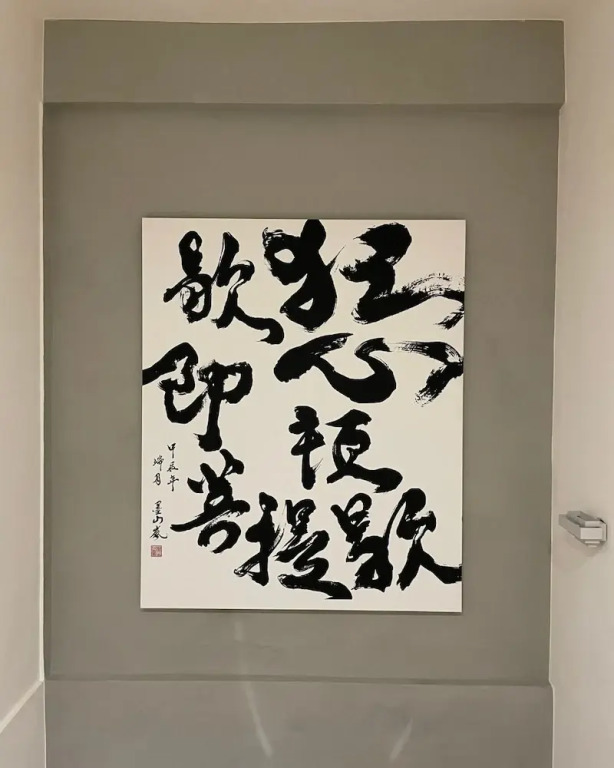 狂心頓歇
歇即菩提
甲辰年
月
墨山